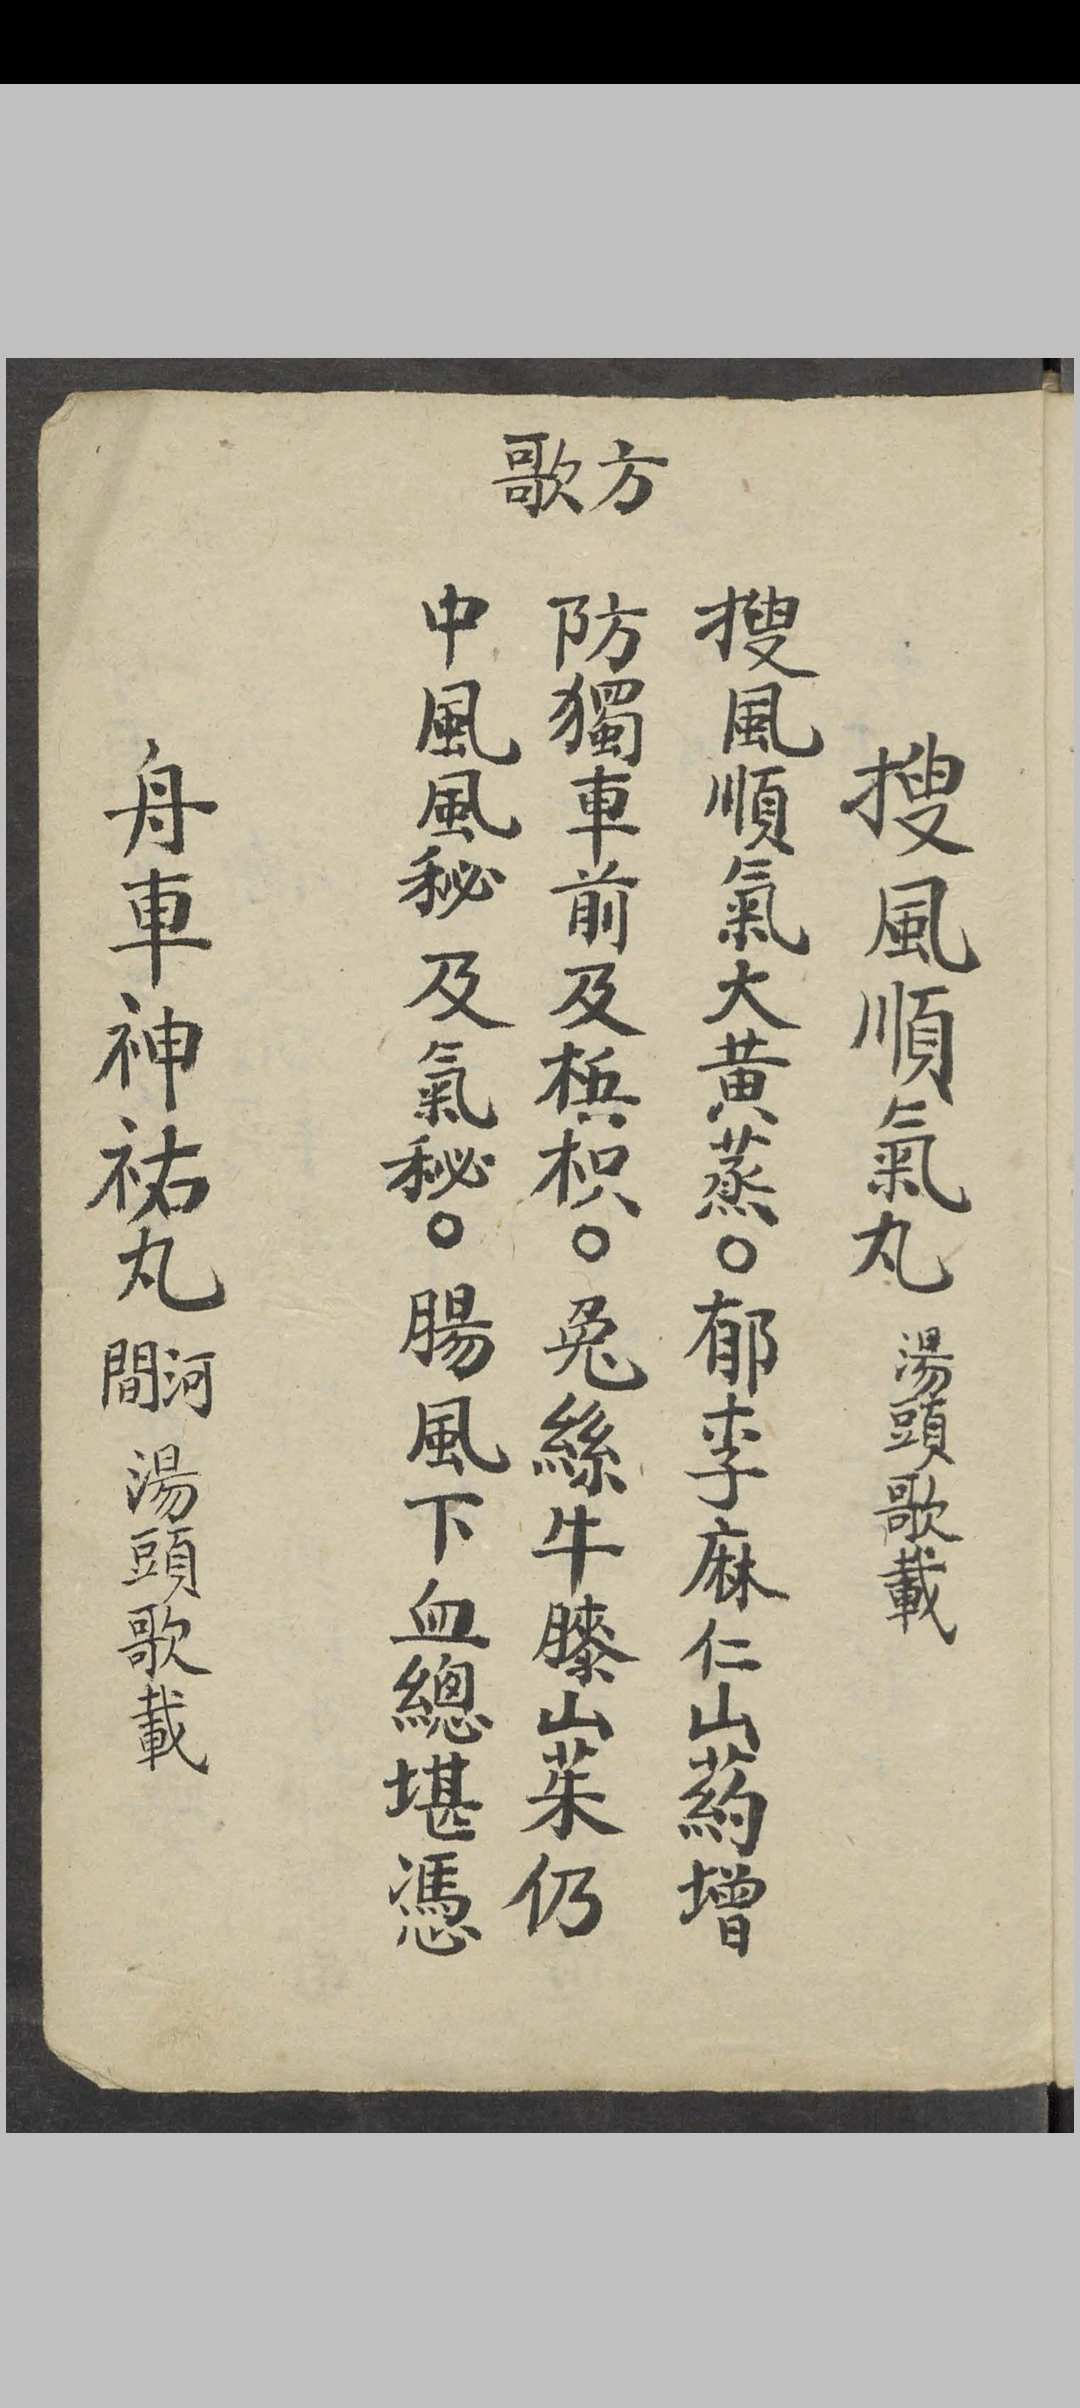 方歌
搜風順氣丸 湯頭歌載
搜風順氣大黃蒸。郁李麻仁山葯增
防獨車前及梹枳。兔絲牛膝山茱仍
中風風秘及氣秘。腸風下血總堪憑
舟車神祐丸 河間 湯頭歌載